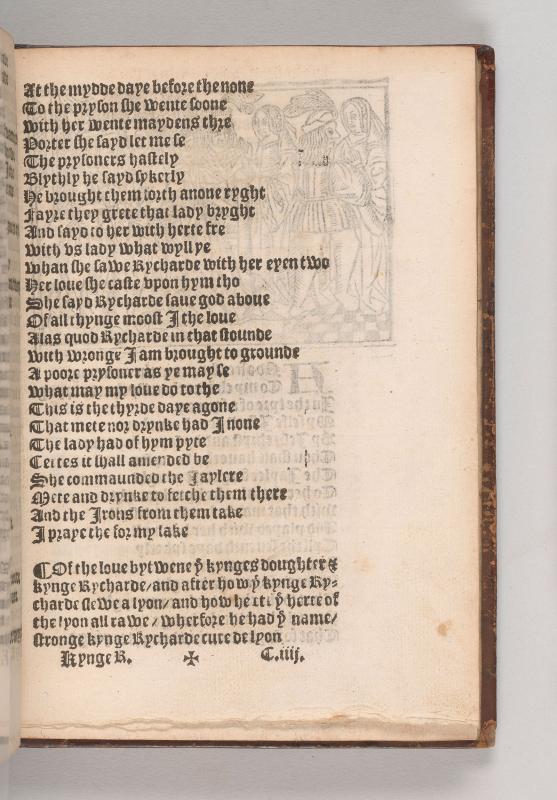 At the mydde daye before the none
To the pryson she wente soone
With her wente maydens thre
Porter she sayd let me se
The prysoners hastely
Blythly he sayd sykerly
He brought them forth anone ryght
Fayre they grete that lady bryght
And sayd to her with herte fre
With vs lady what wyll ye
Whan she sawe Rycharde with her eyen two
Her loue she caste vpon hym tho
She sayd Rycharde saue god aboue
Of all thynge moost I the loue
Alas quod Rycharde in that stounde
With wronge I am brought to grounde
A poore prysoner as ye may se
What may my loue do to the
This is the thyrde daye agone
That mete nor drynke had I none
The lady had of hym pyte
Certes it shall amended be
She commaunded the Jaylere
Mete and drynke to fetche them there
And the Irons from them take
I praye the for my sake
¶Of the loue bytwene yͤ kynges doughter &
kynge Rycharde/and after how yͤ kynge Ry-
charde slewe a lyon/and how he ete yͤ herte of
the lyon all rawe/wherfore he had yͤ name/
stronge kynge Rycharde cure de lyon
Kynge R. ✠ C.iiij.